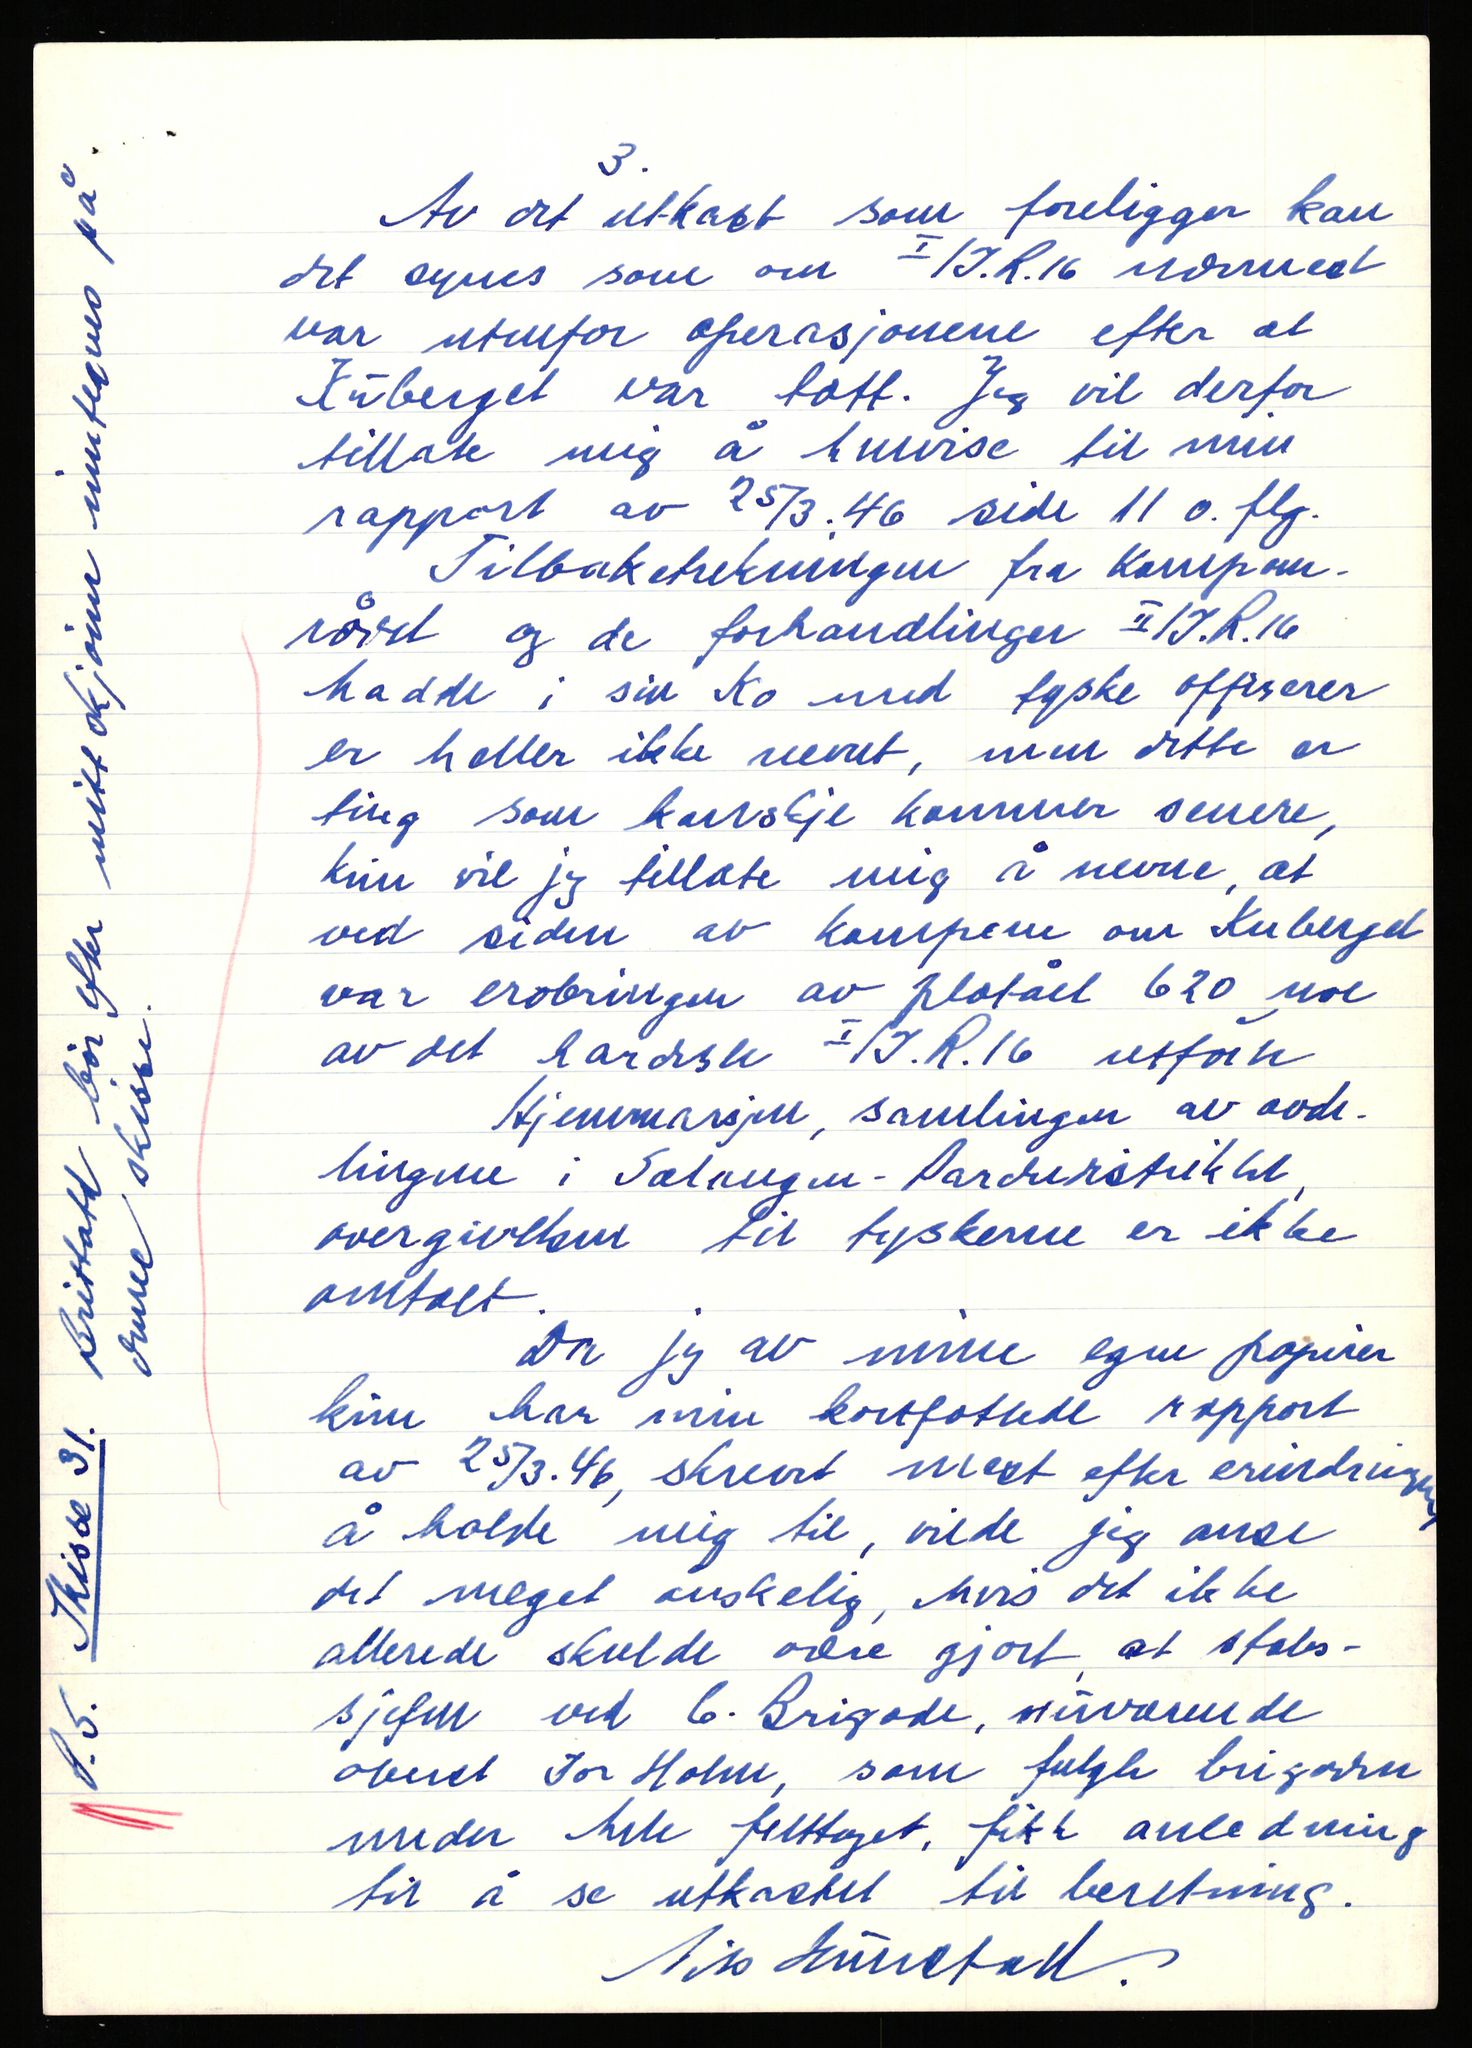 3.
Av det utkast som foreligger kan
det synes som om I/I.R.16 nærmest
var utenfor operasjonene efter at
Kuberget var tatt. Jeg vil derfor
tillate mig å henvise til min
rapport av 25/3.46 side 11 o. flg.
Tilbaketrekningen fra kampom-
rådet og de forhandlinger II/I.R.16
hadde i sin Ko med tyske offiserer
er heller ikke nevnt, men dette er
ting som kanskje kommer senere,
kun vil jeg tillate mig å nevne, at
ved siden av kampene om Kuberget
var erobringen av platået 620 noe
av det hardeste I/I.R.16 utførte
Hjemmarsjen, samlingen av avde-
lingene i Salangen-Bardudistriktet,
overgivelsen til tyskerne er ikke
omtalt.
Da jeg av mine egne papirer
kun har min kortfattede rapport
av 25/3.46, skrevet mest efter erindringen,
å holde mig til, vilde jeg anse
det meget ønskelig, hvis det ikke
allerede skulde være gjort, at stabs-
sjefen ved 6. Brigade, nuværende
oberst Tor Holm, som fulgte brigaden
under hele felttoget, fikk anledning
til å se utkastet til beretning.
Nils
P.S. Skisse 31. Britatt bør efter mitt skjønn inntegnes på
denne skisse.